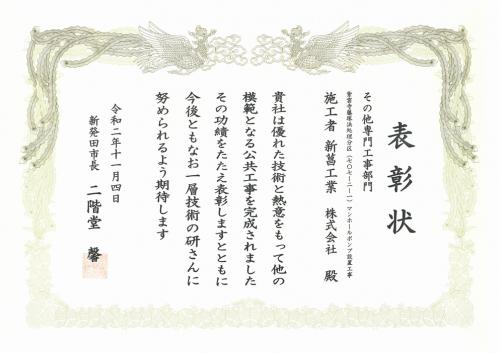 表彰状
その他専門工事部門
紫雲寺藤塚浜処理分区（七〇七ー二ー一）マンホールポンプ設置工事
施工者 新菖工業 株式会社 殿
貴社は優れた技術と熱意をもって他の
模範となる公共工事を完成されました
その功績をたたえ表彰しますとともに
今後ともなお一層技術の研さんに
努められるよう期待します
令和二年十一月四日
新発田市長 二階堂 馨